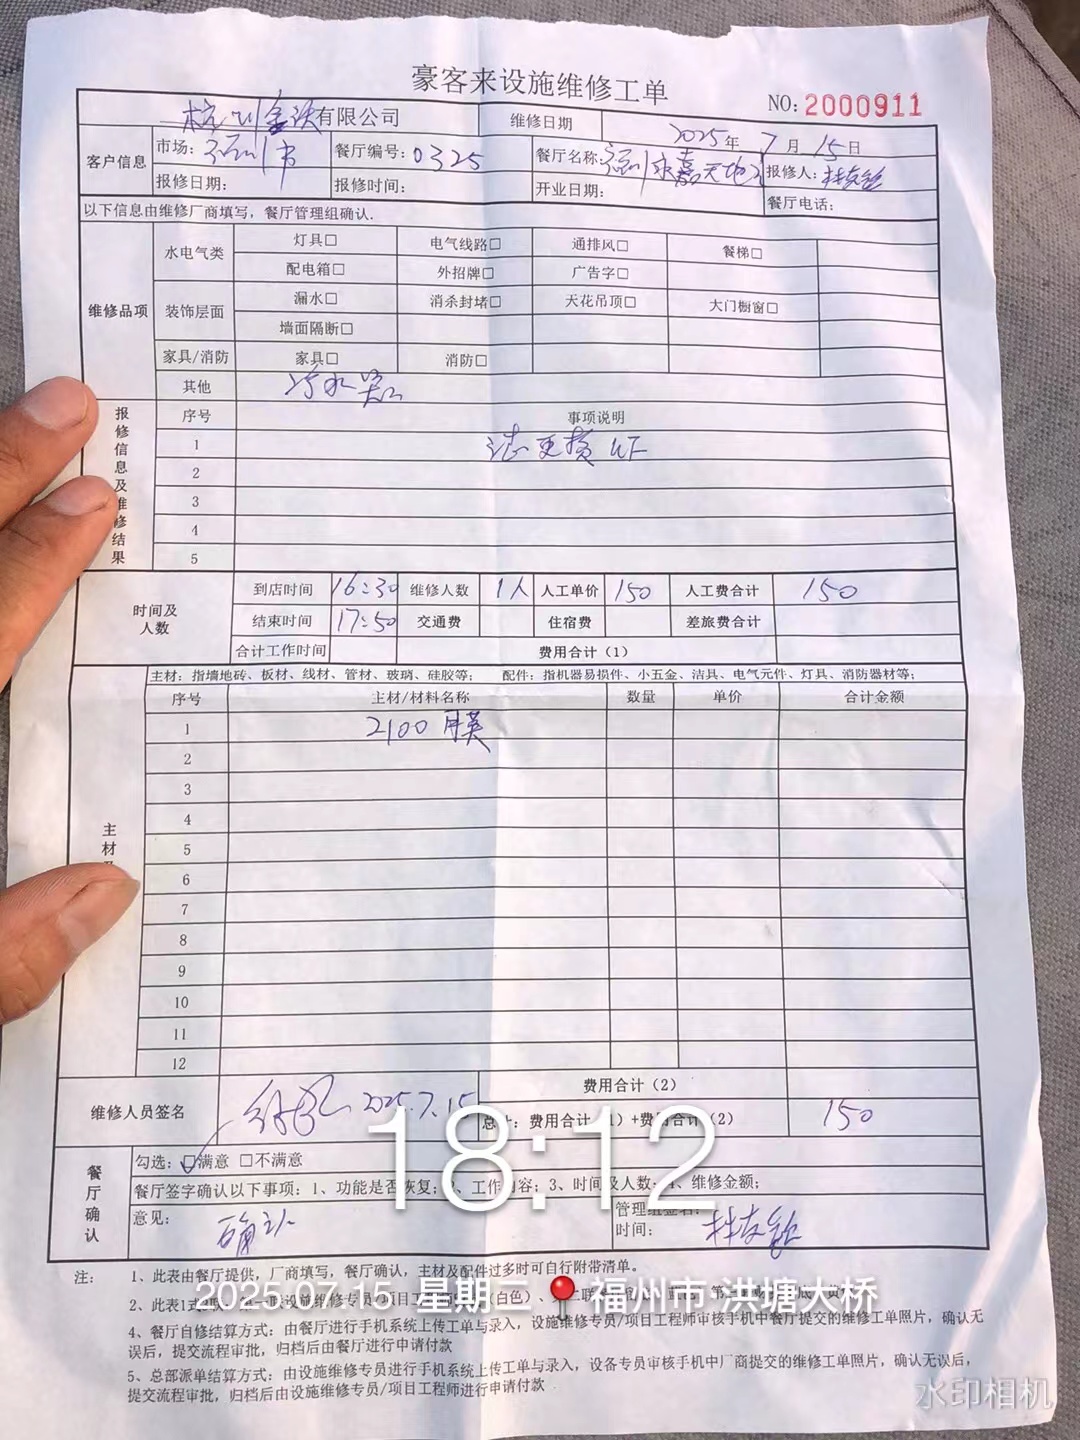 豪客来设施维修工单
NO: 2000911
有限公司 维修日期 2025年 7月 15日
客户信息 市场: 福州市 餐厅编号: 0325 餐厅名称: 福州永嘉天地 报修人: 林友钦
报修日期: 报修时间: 开业日期: 餐厅电话:
以下信息由维修厂商填写，餐厅管理组确认.
维修品项 水电气类 灯具□ 电气线路□ 通排风□ 餐梯□
配电箱□ 外招牌□ 广告字□
装饰层面 漏水□ 消杀封堵□ 天花吊顶□ 大门橱窗□
墙面隔断□
家具/消防 家具□ 消防□
其他 净水器
报修信息及维修结果 序号 事项说明
1 滤更换
2
3
4
5
时间及人数 到店时间 16:30 维修人数 1人 人工单价 150 人工费合计 150
结束时间 17:50 交通费 住宿费 差旅费合计
合计工作时间 费用合计（1）
主材：指墙地砖、板材、线材、管材、玻璃、硅胶等； 配件：指机器易损件、小五金、洁具、电气元件、灯具、消防器材等；
主材 序号 主材/材料名称 数量 单价 合计金额
1 2100
2
3
4
5
6
7
8
9
10
11
12
维修人员签名 2025.7.15 费用合计（2）
总计：费用合计（1）+费用合计（2） 150
餐厅确认 勾选: □满意 □不满意
餐厅签字确认以下事项：1、功能是否恢复；2、工作内容；3、时间及人数；4、维修金额；
意见: 确认 管理组签名:
时间: 林友钦
18:12
注: 1、此表由餐厅提供，厂商填写，餐厅确认，主材及配件过多时可自行附带清单。
2025.07.15 星期二 福州市·洪塘大桥
4、餐厅自修结算方式：由餐厅进行手机系统上传工单与录入，设施维修专员/项目工程师审核手机中餐厅提交的维修工单照片，确认无
误后，提交流程审批，归档后由餐厅进行申请付款
5、总部派单结算方式：由设施维修专员进行手机系统上传工单与录入，设备专员审核手机中厂商提交的维修工单照片，确认无误后，
提交流程审批，归档后由设施维修专员/项目工程师进行申请付款
水印相机